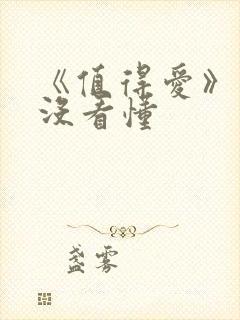 《值得爱》
没看懂
盏雾